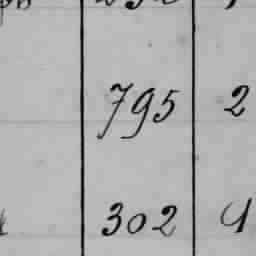 795 2
302 4